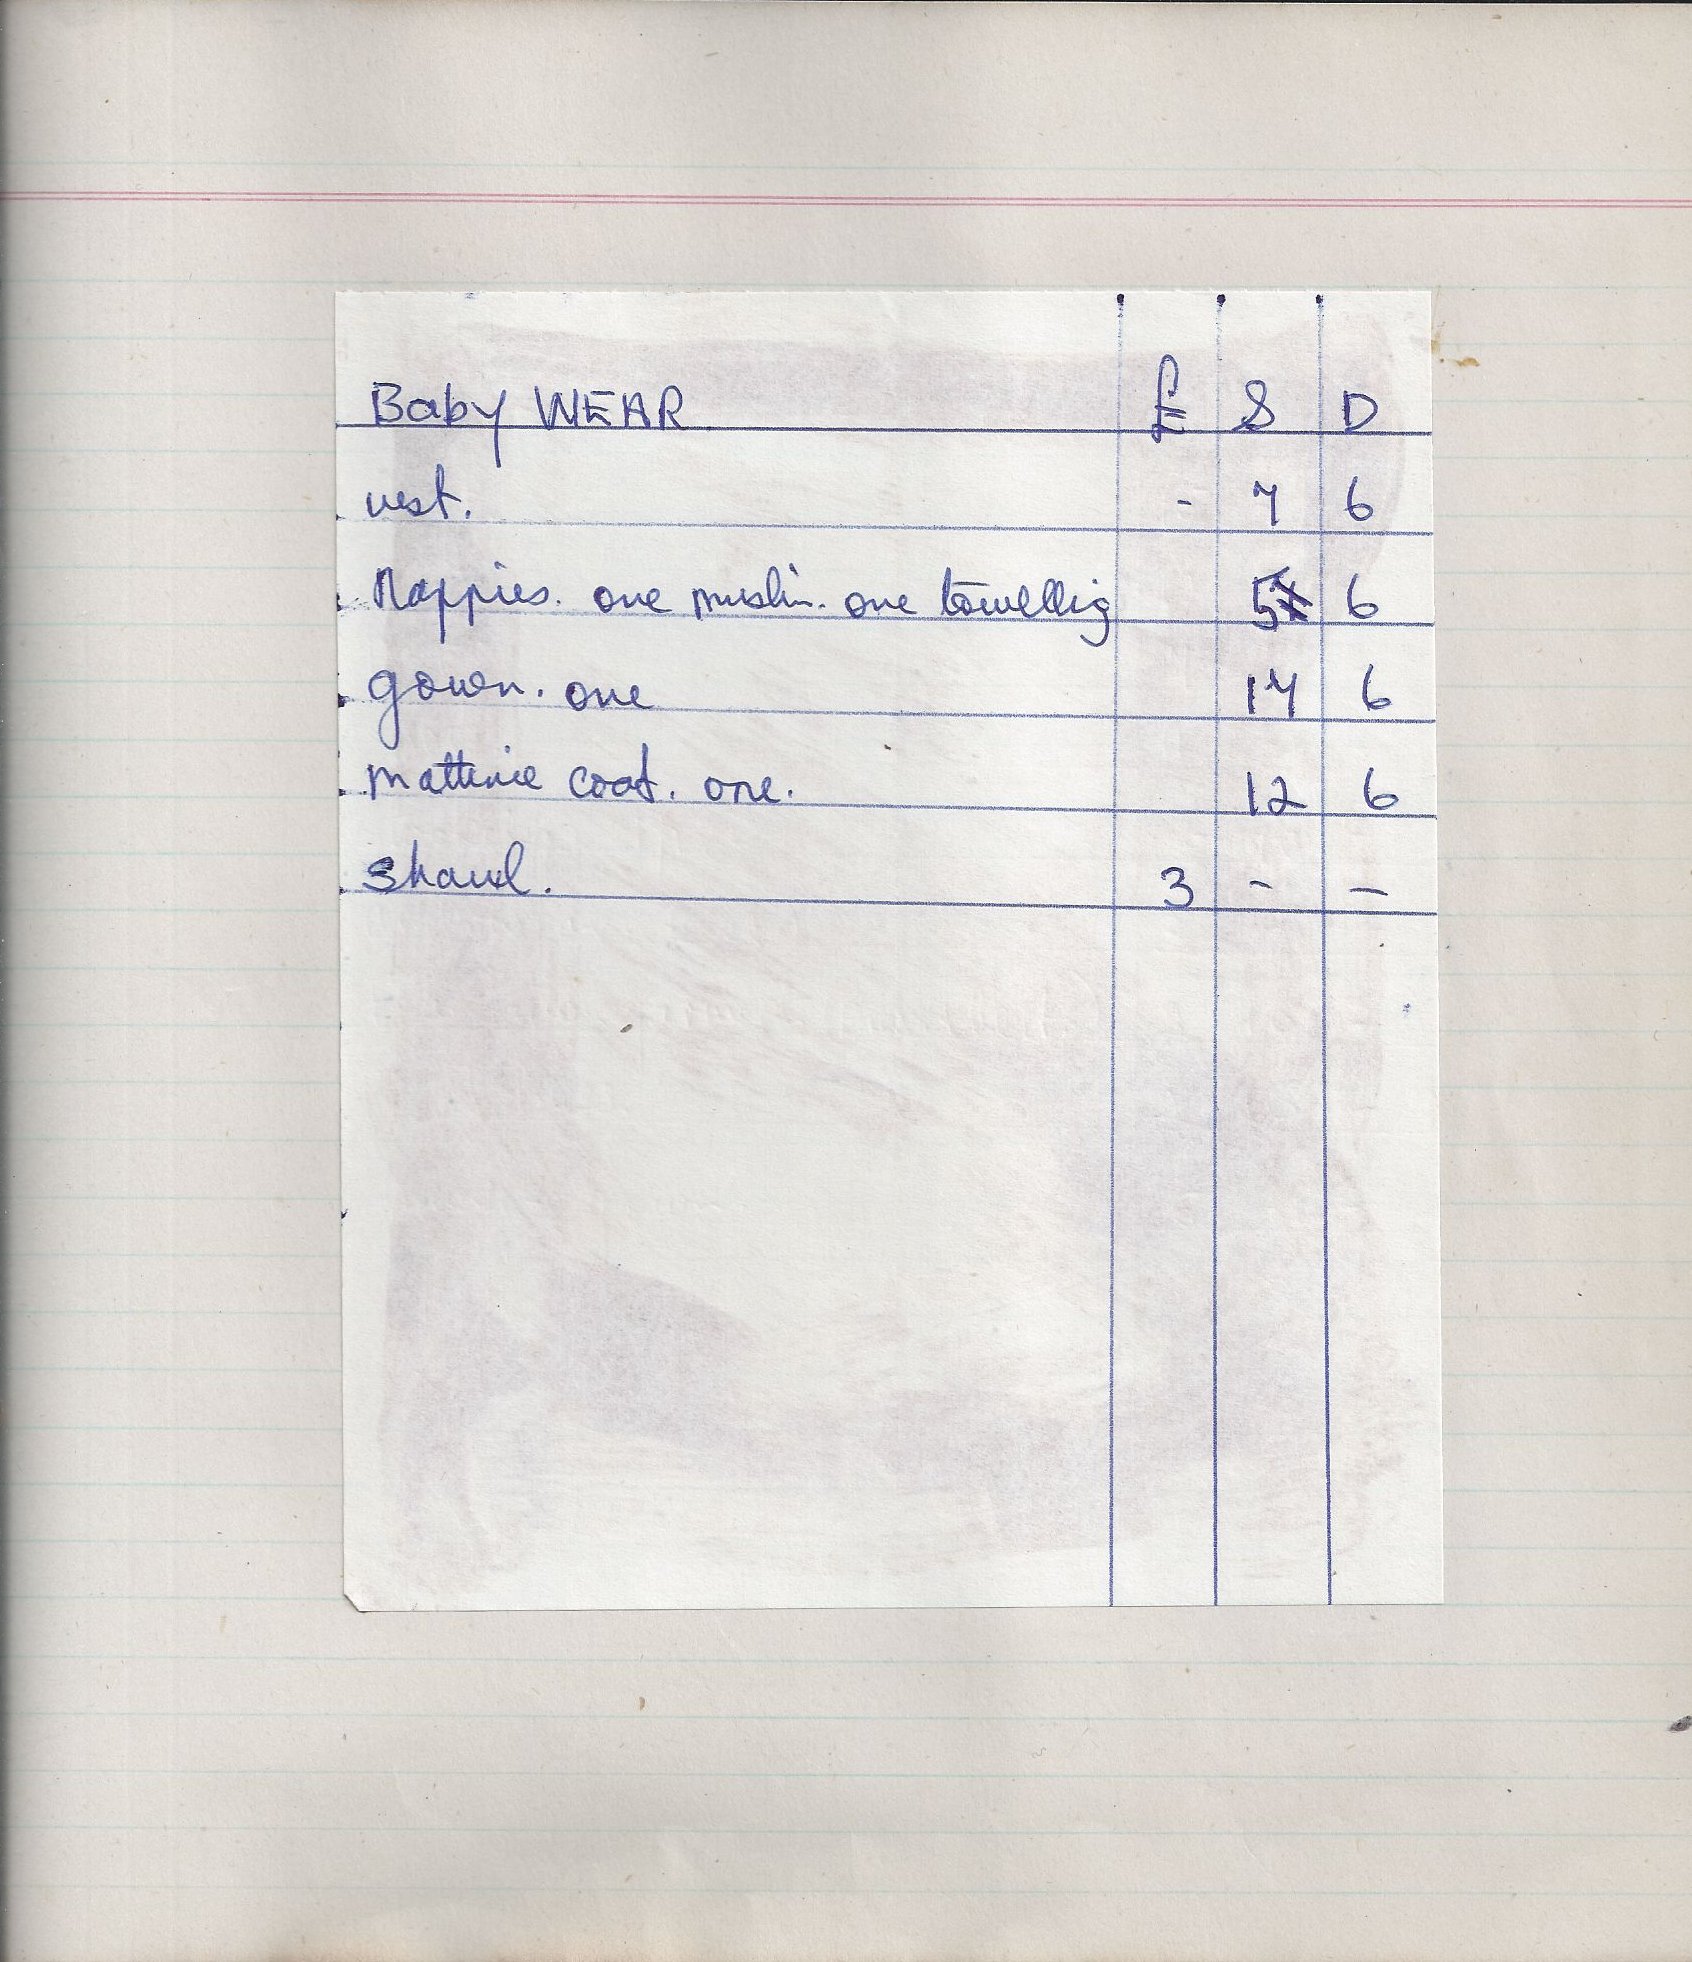 Baby WEAR £ S D
vest. - 7 6
Nappies. one muslin. one towellig 5 6
gown. one 17 6
mattinie coat. one. 12 6
shawl. 3 - -